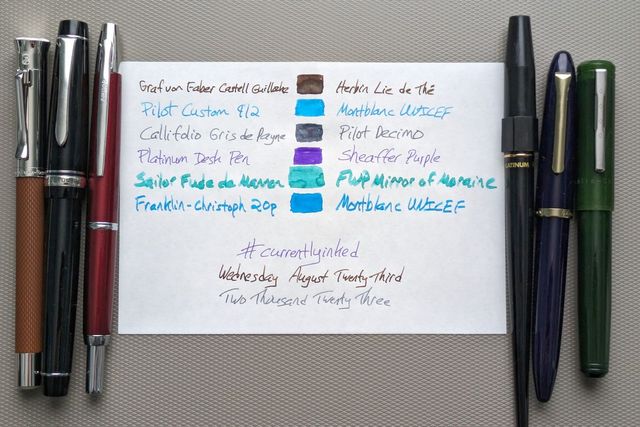 Graf von Faber Castell Guilloche Herbin Lie de Thé
Pilot Custom 912 Montblanc UNICEF
Callifolio Gris de Payne Pilot Decimo
Platinum Desk Pen Sheaffer Purple
Sailor Fude de Mannen FWP Mirror of Moraine
Franklin-Christoph 20p Montblanc UNICEF
#currentlyinked
Wednesday August Twenty Third
Two Thousand Twenty Three
PLATINUM